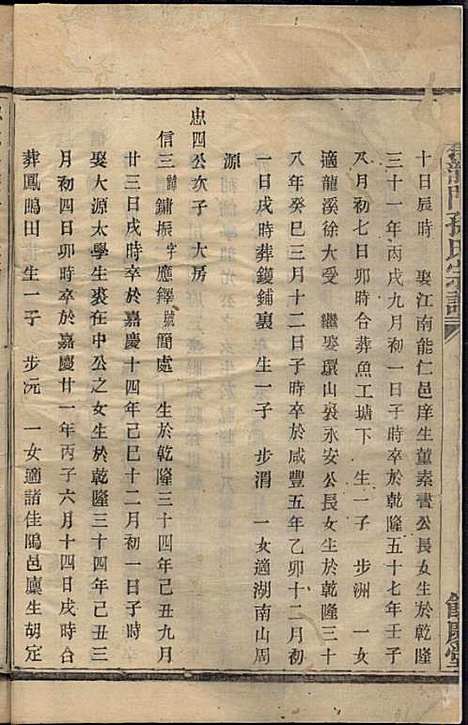 龍門孫氏宗譜
餘慶堂
十日辰時 娶江南能仁邑庠生董素書公長女生於乾隆
三十一年丙戌九月初一日子時卒於乾隆五十七年壬子
八月初七日卯時合葬魚工塘下 生一子 步洲 一女
適龍溪徐大受 繼娶環山裘永安公長女生於乾隆三十
八年癸巳三月十二日子時卒於咸豐五年乙卯十二月初
一日戌時葬鑊鋪裏 生一子 步渭 一女適湖南山周
源
忠四公次子 大房
信三諱鏞振字應鐸號簡處 生於乾隆三十四年己丑九月
廿三日戌時卒於嘉慶十四年己巳十二月初一日子時
娶大源太學生裘在中公之女生於乾隆三十四年己丑三
月初四日卯時卒於嘉慶廿一年丙子六月十四日戌時合
葬鳳鳴田 生一子 步沅 一女適諸佳隝邑廩生胡定